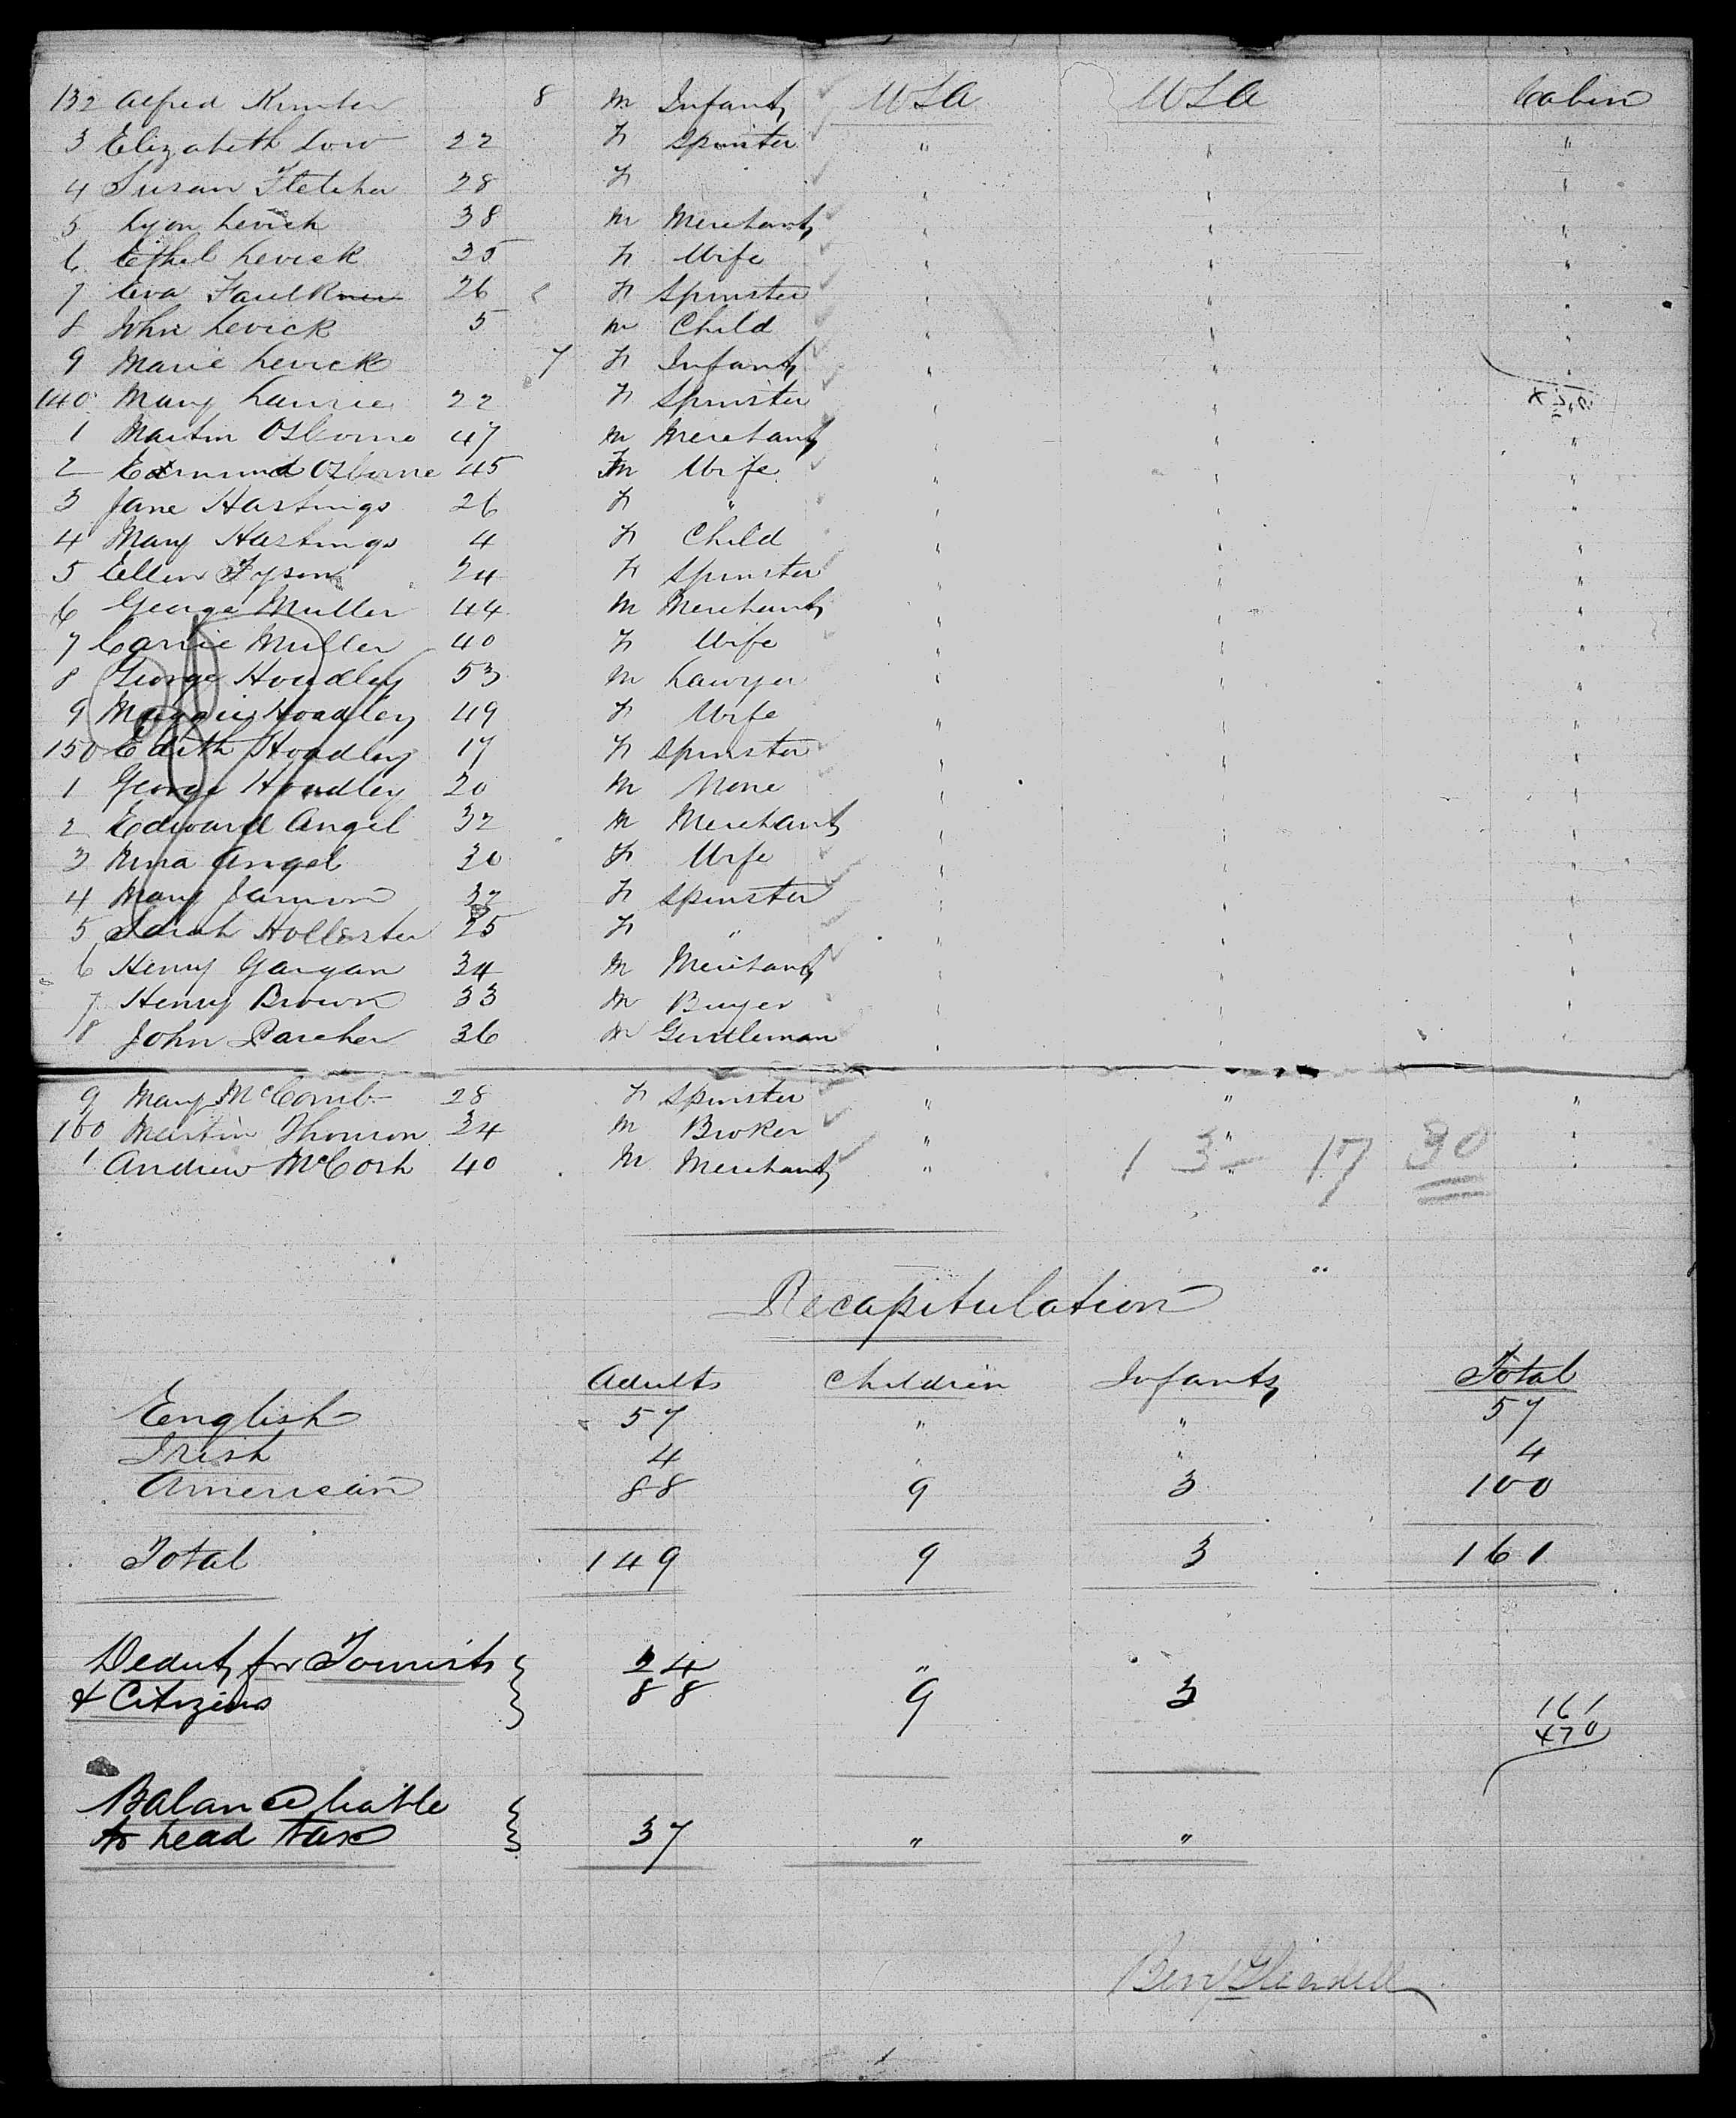 132 Alfred Kimber 8 M Infant USA USA Cabin
3 Elizabeth Low 22 F Spinster " " "
4 Susan Fletcher 28 F " " "
5 Lyon Levick 38 M Merchant " " "
6 Ethel Levick 35 F Wife " " "
7 Eva Faulkner 26 F Spinster " " "
8 John Levick 5 M Child " " "
9 Marie Levick 7 F Infant " " "
140 Mary Laurie 22 F Spinster " "
1 Martin Osborne 47 M Merchant " " "
2 Osborne 45 F Wife " " "
3 Jane Hastings 26 F " " " "
4 Mary Hastings 4 F Child " " "
5 Ellen Tyson 24 F Spinster " " "
6 George Muller 44 M Merchant " " "
7 Carrie Muller 40 F Wife " " "
8 George Hoadley 53 M Lawyer " " "
9 Maggie Hoadley 49 F Wife " " "
150 Edith Hoadley 17 F Spinster " " "
1 George Hoadley 20 M None " " "
2 Edward Angel 32 M Merchant " " "
3 Nina Angel 30 F Wife " " "
4 Mary 32 F Spinster " " "
5 Sarah Hollister 25 F " " " "
6 Henry Gargan 34 M Merchant " " "
7 Henry Brown 33 M Buyer " " "
8 John Parcher 36 M Gentleman " " "
9 Mary McComb 28 F Spinster " " "
160 Martin Thomson 34 M Broker " " "
1 Andrew McCosh 40 M Merchant " " "
13 - 17 30
Recapitulation
Adults Children Infants Total
English 57 " " 57
Irish 4 " " 4
American 88 9 3 100
Total 149 9 3 161
Deduct for Tourists 24 "
& Citizens 88 9 3
161
470
Balance liable
to head tax 37 " "